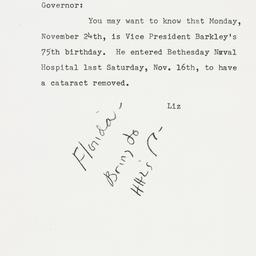 Governor:
You may want to know that Monday,
November 24th, is Vice President Barkley's
75th birthday.  He entered Bethesday Naval
Hospital last Saturday, Nov. 16th, to have
a cataract removed.
Liz
Florida -
Bring to